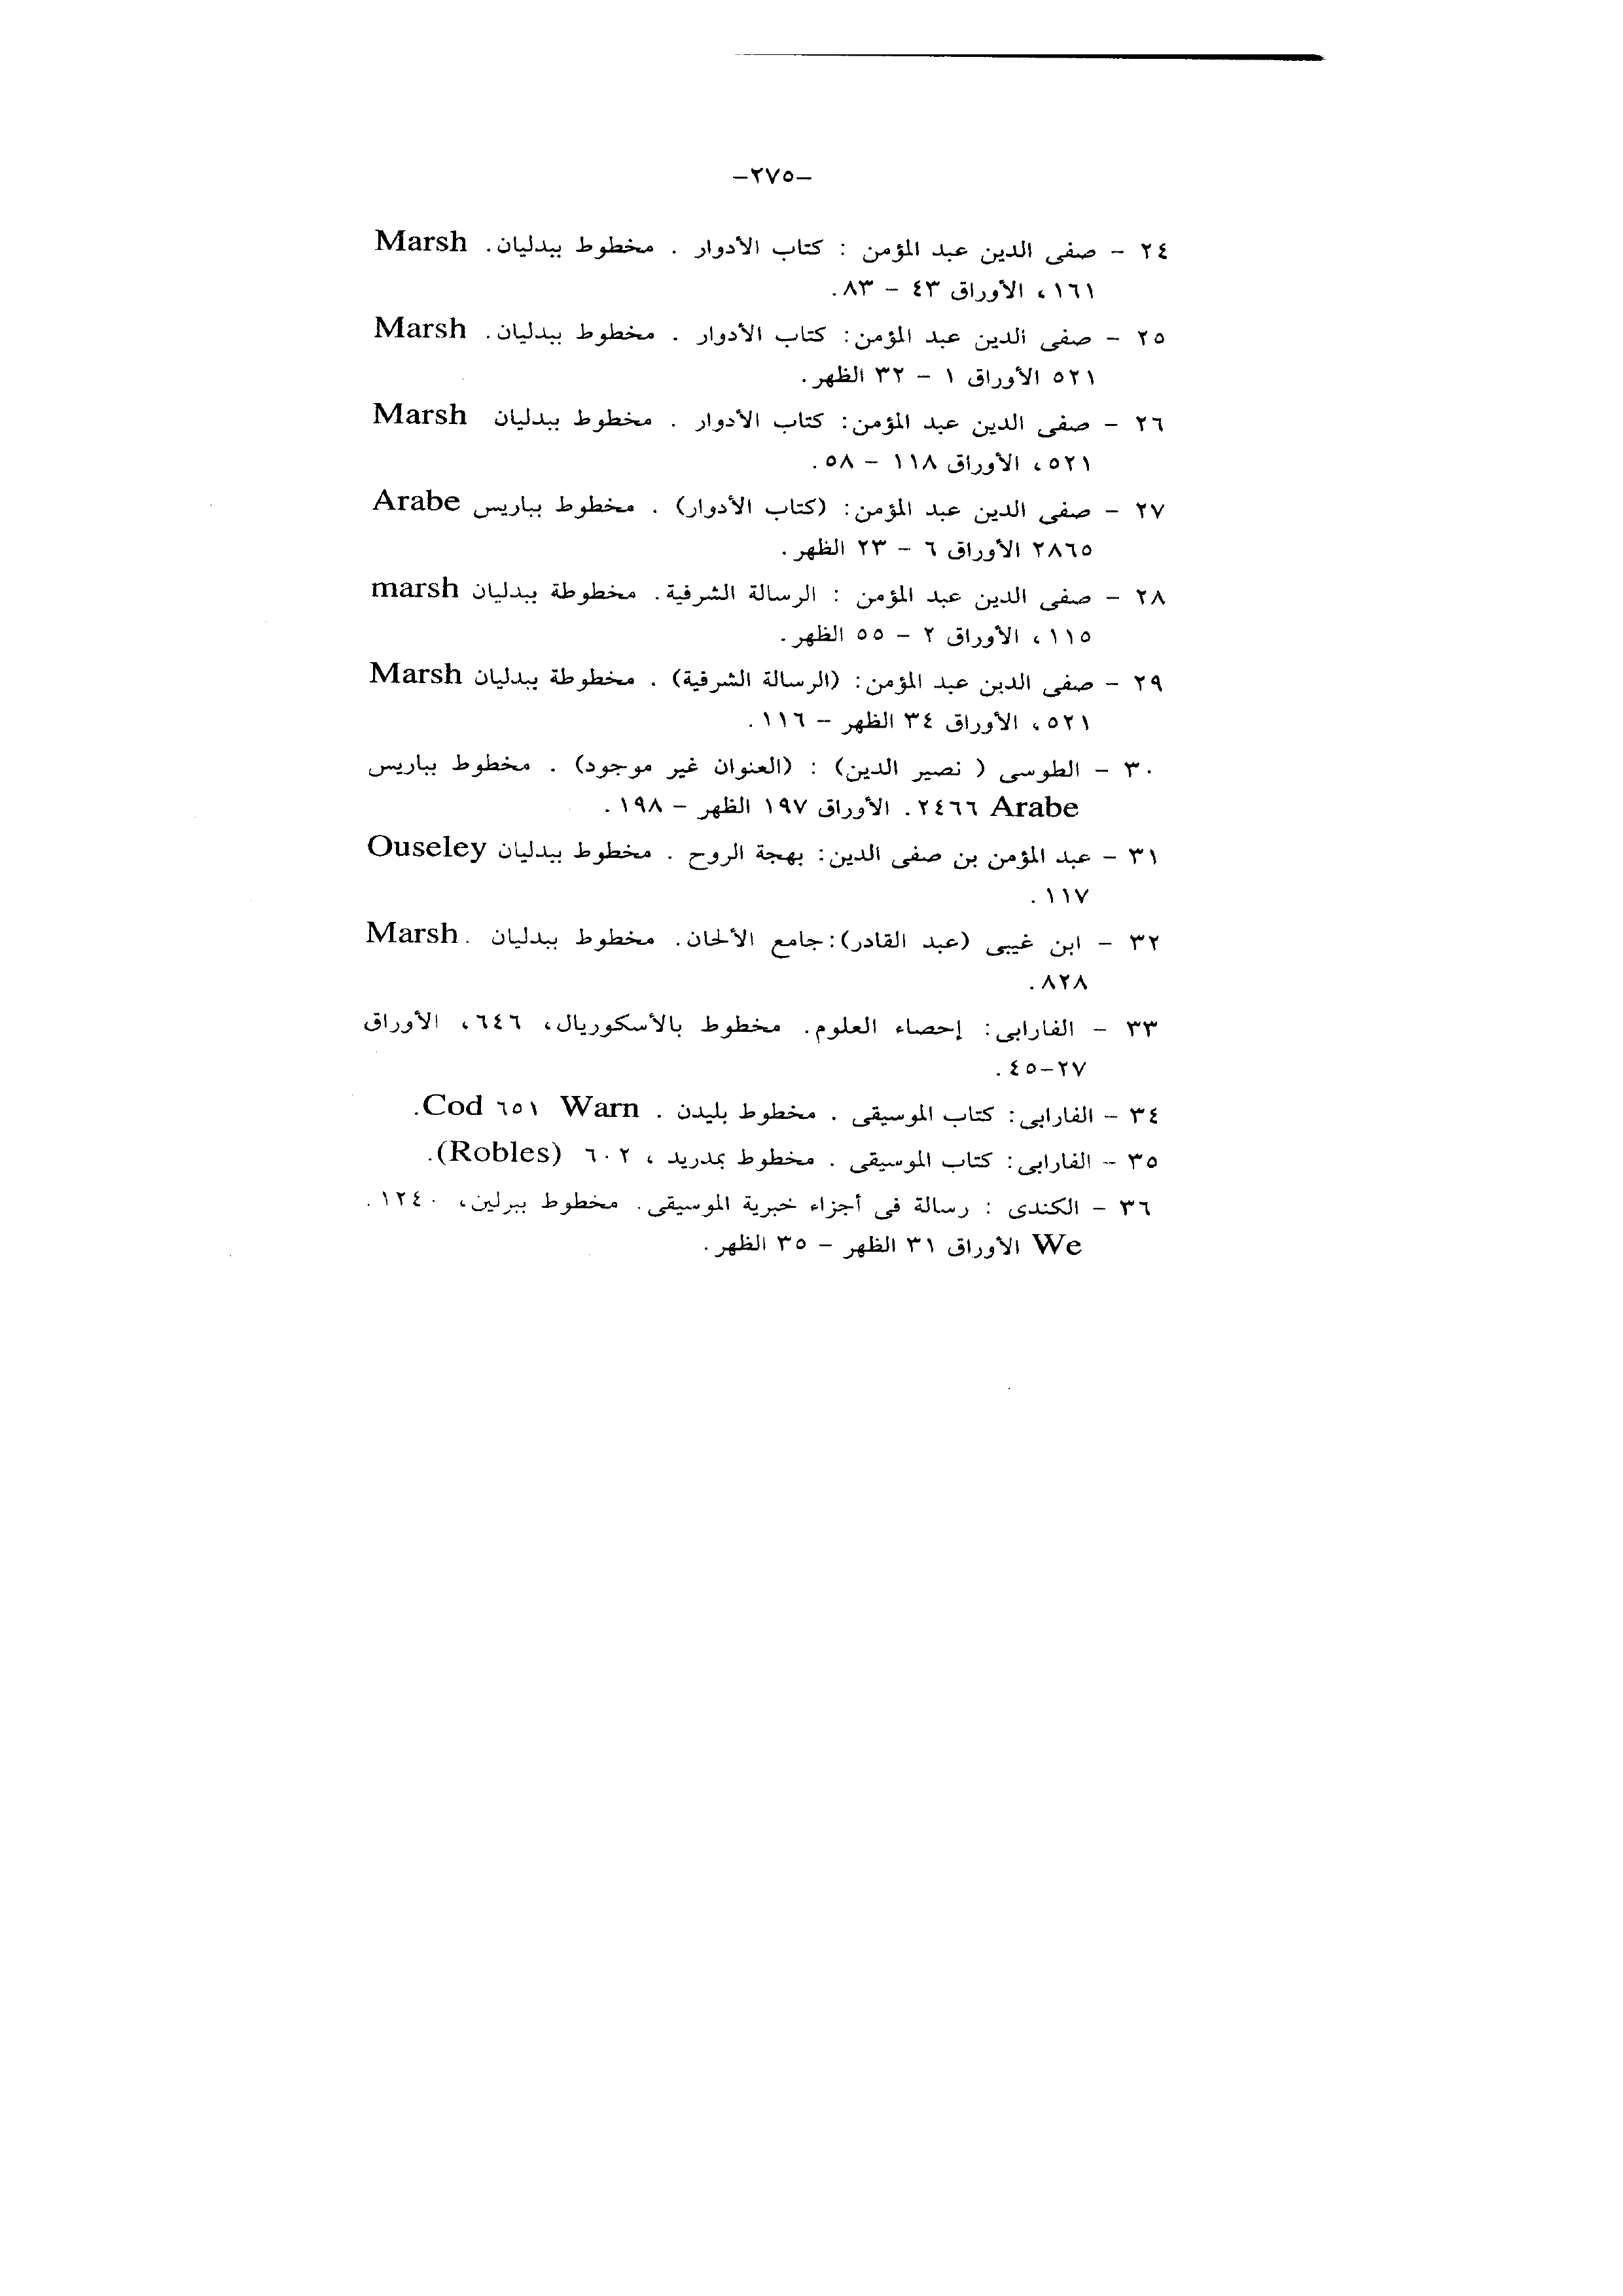 –٢٧٥–
٢٤ – صفى الدين عبد المؤمن : كتاب الأدوار . مخطوط ببدليان. Marsh
١٦١، الأوراق ٤٣ – ٨٣.
٢٥ – صفى الدين عبد المؤمن: كتاب الأدوار . مخطوط ببدليان. Marsh
٥٢١ الأوراق ١ – ٣٢ الظهر.
٢٦ – صفى الدين عبد المؤمن: كتاب الأدوار . مخطوط ببدليان Marsh
٥٢١، الأوراق ١١٨ – ٥٨.
٢٧ – صفى الدين عبد المؤمن: (كتاب الأدوار) . مخطوط بباريس Arabe
٢٨٦٥ الأوراق ٦ – ٢٣ الظهر.
٢٨ – صفى الدين عبد المؤمن : الرسالة الشرفية. مخطوطة ببدليان marsh
١١٥، الأوراق ٢ – ٥٥ الظهر.
٢٩ – صفى الدين عبد المؤمن: (الرسالة الشرفية) . مخطوطة ببدليان Marsh
٥٢١، الأوراق ٣٤ الظهر – ١١٦.
٣٠ – الطوسى ( نصير الدين) : (العنوان غير موجود) . مخطوط بباريس
Arabe ٢٤٦٦. الأوراق ١٩٧ الظهر – ١٩٨.
٣١ – عبد المؤمن بن صفى الدين: بهجة الروح . مخطوط ببدليان Ouseley
١١٧ .
٣٢ – ابن غيبى (عبد القادر):جامع الألحان. مخطوط ببدليان .Marsh
٨٢٨.
٣٣ – الفارابى: إحصاء العلوم. مخطوط بالأسكوريال، ٦٤٦، الأوراق
٢٧–٤٥ .
٣٤ – الفارابى: كتاب الموسيقى . مخطوط بليدن . Cod ٦٥١ Warn.
٣٥ – الفارابى: كتاب الموسيقى . مخطوط بمدريد ، ٦٠٢ (Robles).
٣٦ – الكندى : رسالة فى أجزاء خبرية الموسيقى. مخطوط ببرلين، ١٢٤٠.
We الأوراق ٣١ الظهر – ٣٥ الظهر.